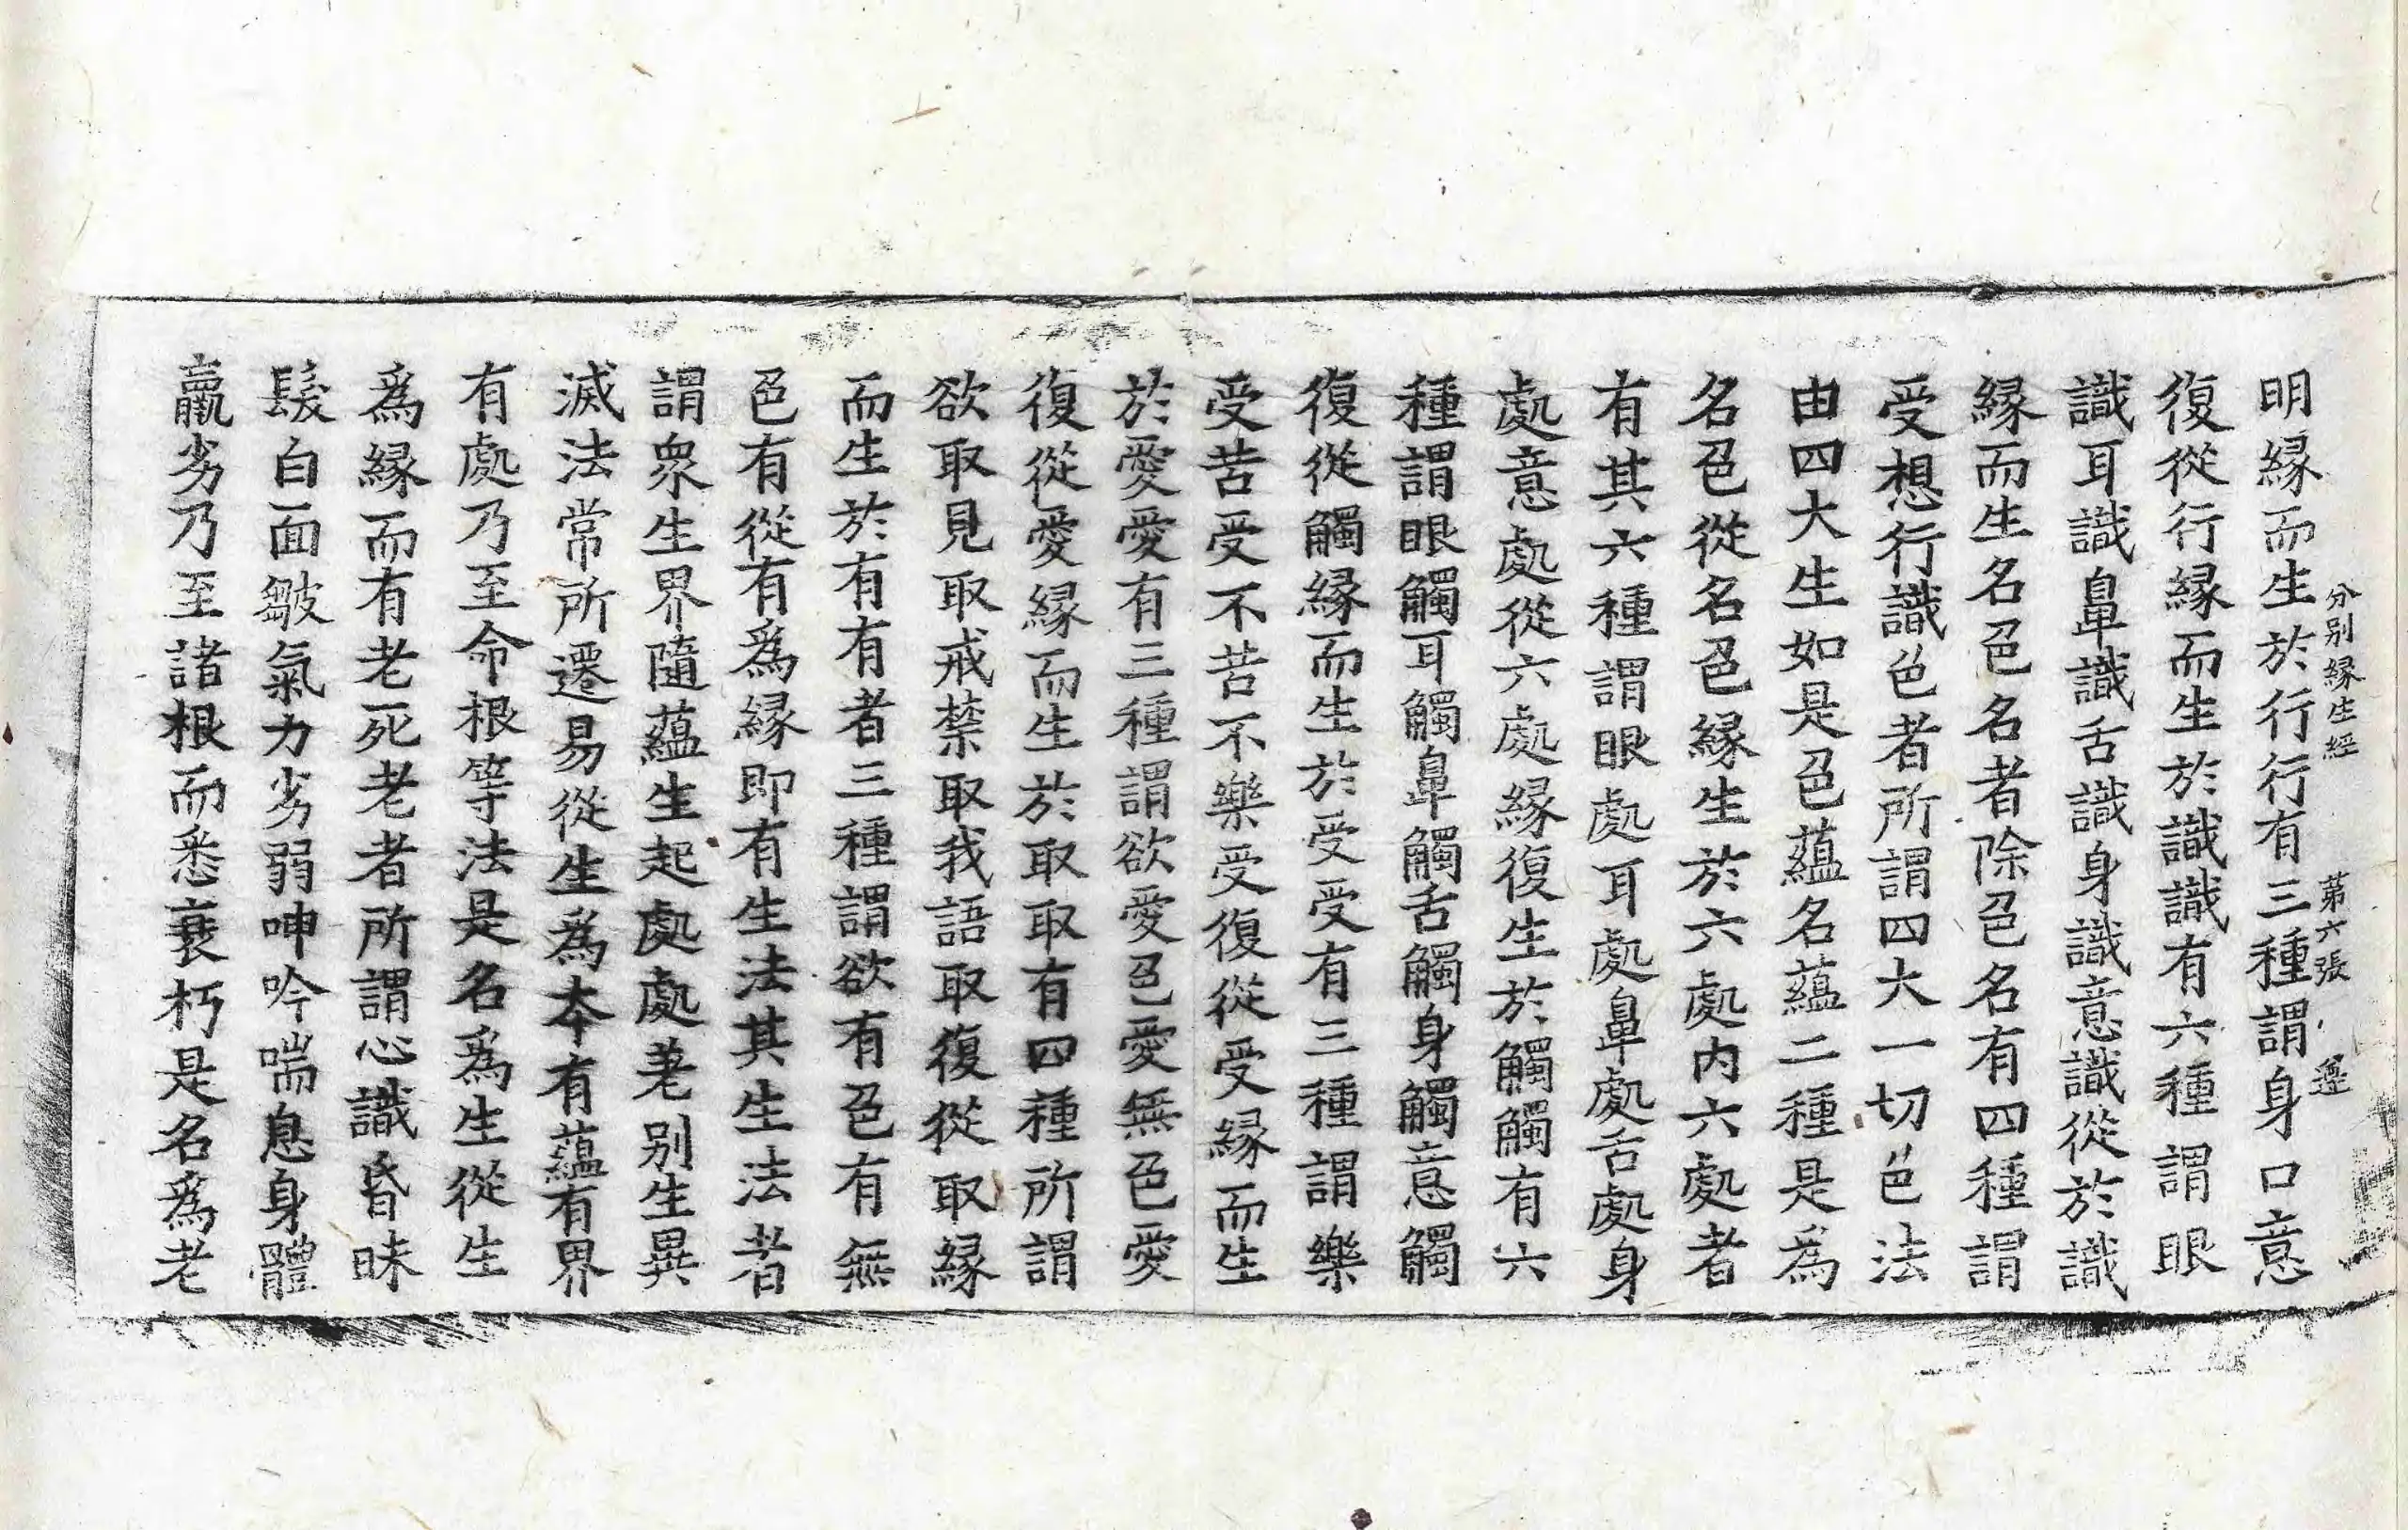 分別緣生經　第六張　遵
明緣而生於行行有三種謂身口意
復從行緣而生於識識有六種謂眼
識耳識鼻識舌識身識意識從於識
緣而生名色名者除色名有四種謂
受想行識色者所謂四大一切色法
由四大生如是色蘊名蘊二種是為
名色從名色緣生於六處內六處者
有其六種謂眼處耳處鼻處舌處身
處意處從六處緣復生於觸觸有六
種謂眼觸耳觸鼻觸舌觸身觸意觸
復從觸緣而生於受受有三種謂樂
受苦受不苦不樂受復從受緣而生
於愛愛有三種謂欲愛色愛無色愛
復從愛緣而生於取取有四種所謂
欲取見取戒禁取我語取復從取緣
而生於有有者三種謂欲有色有無
色有從有爲緣即有生法其生法者
謂衆生界隨蘊生起處處差別生異
滅法常所遷易從生爲本有蘊有界
有處乃至命根等法是名爲生從生
爲緣而有老死老者所謂心識昏昧
髮白面皺氣力劣弱呻吟喘息身體
羸劣乃至諸根而悉衰朽是名爲老